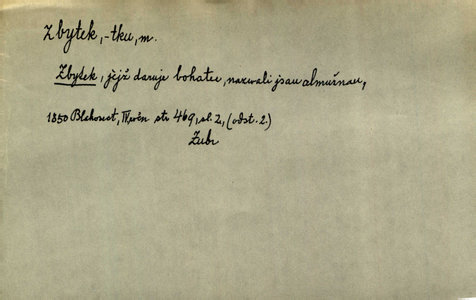 Zbytek, -tku, m.
Zbytek, jějž daruje bohatec, nazvali jsau almužnau,
1850 Blahověst, IV. roč. str 469, sl. 2, (odst. 2.)
Zubr